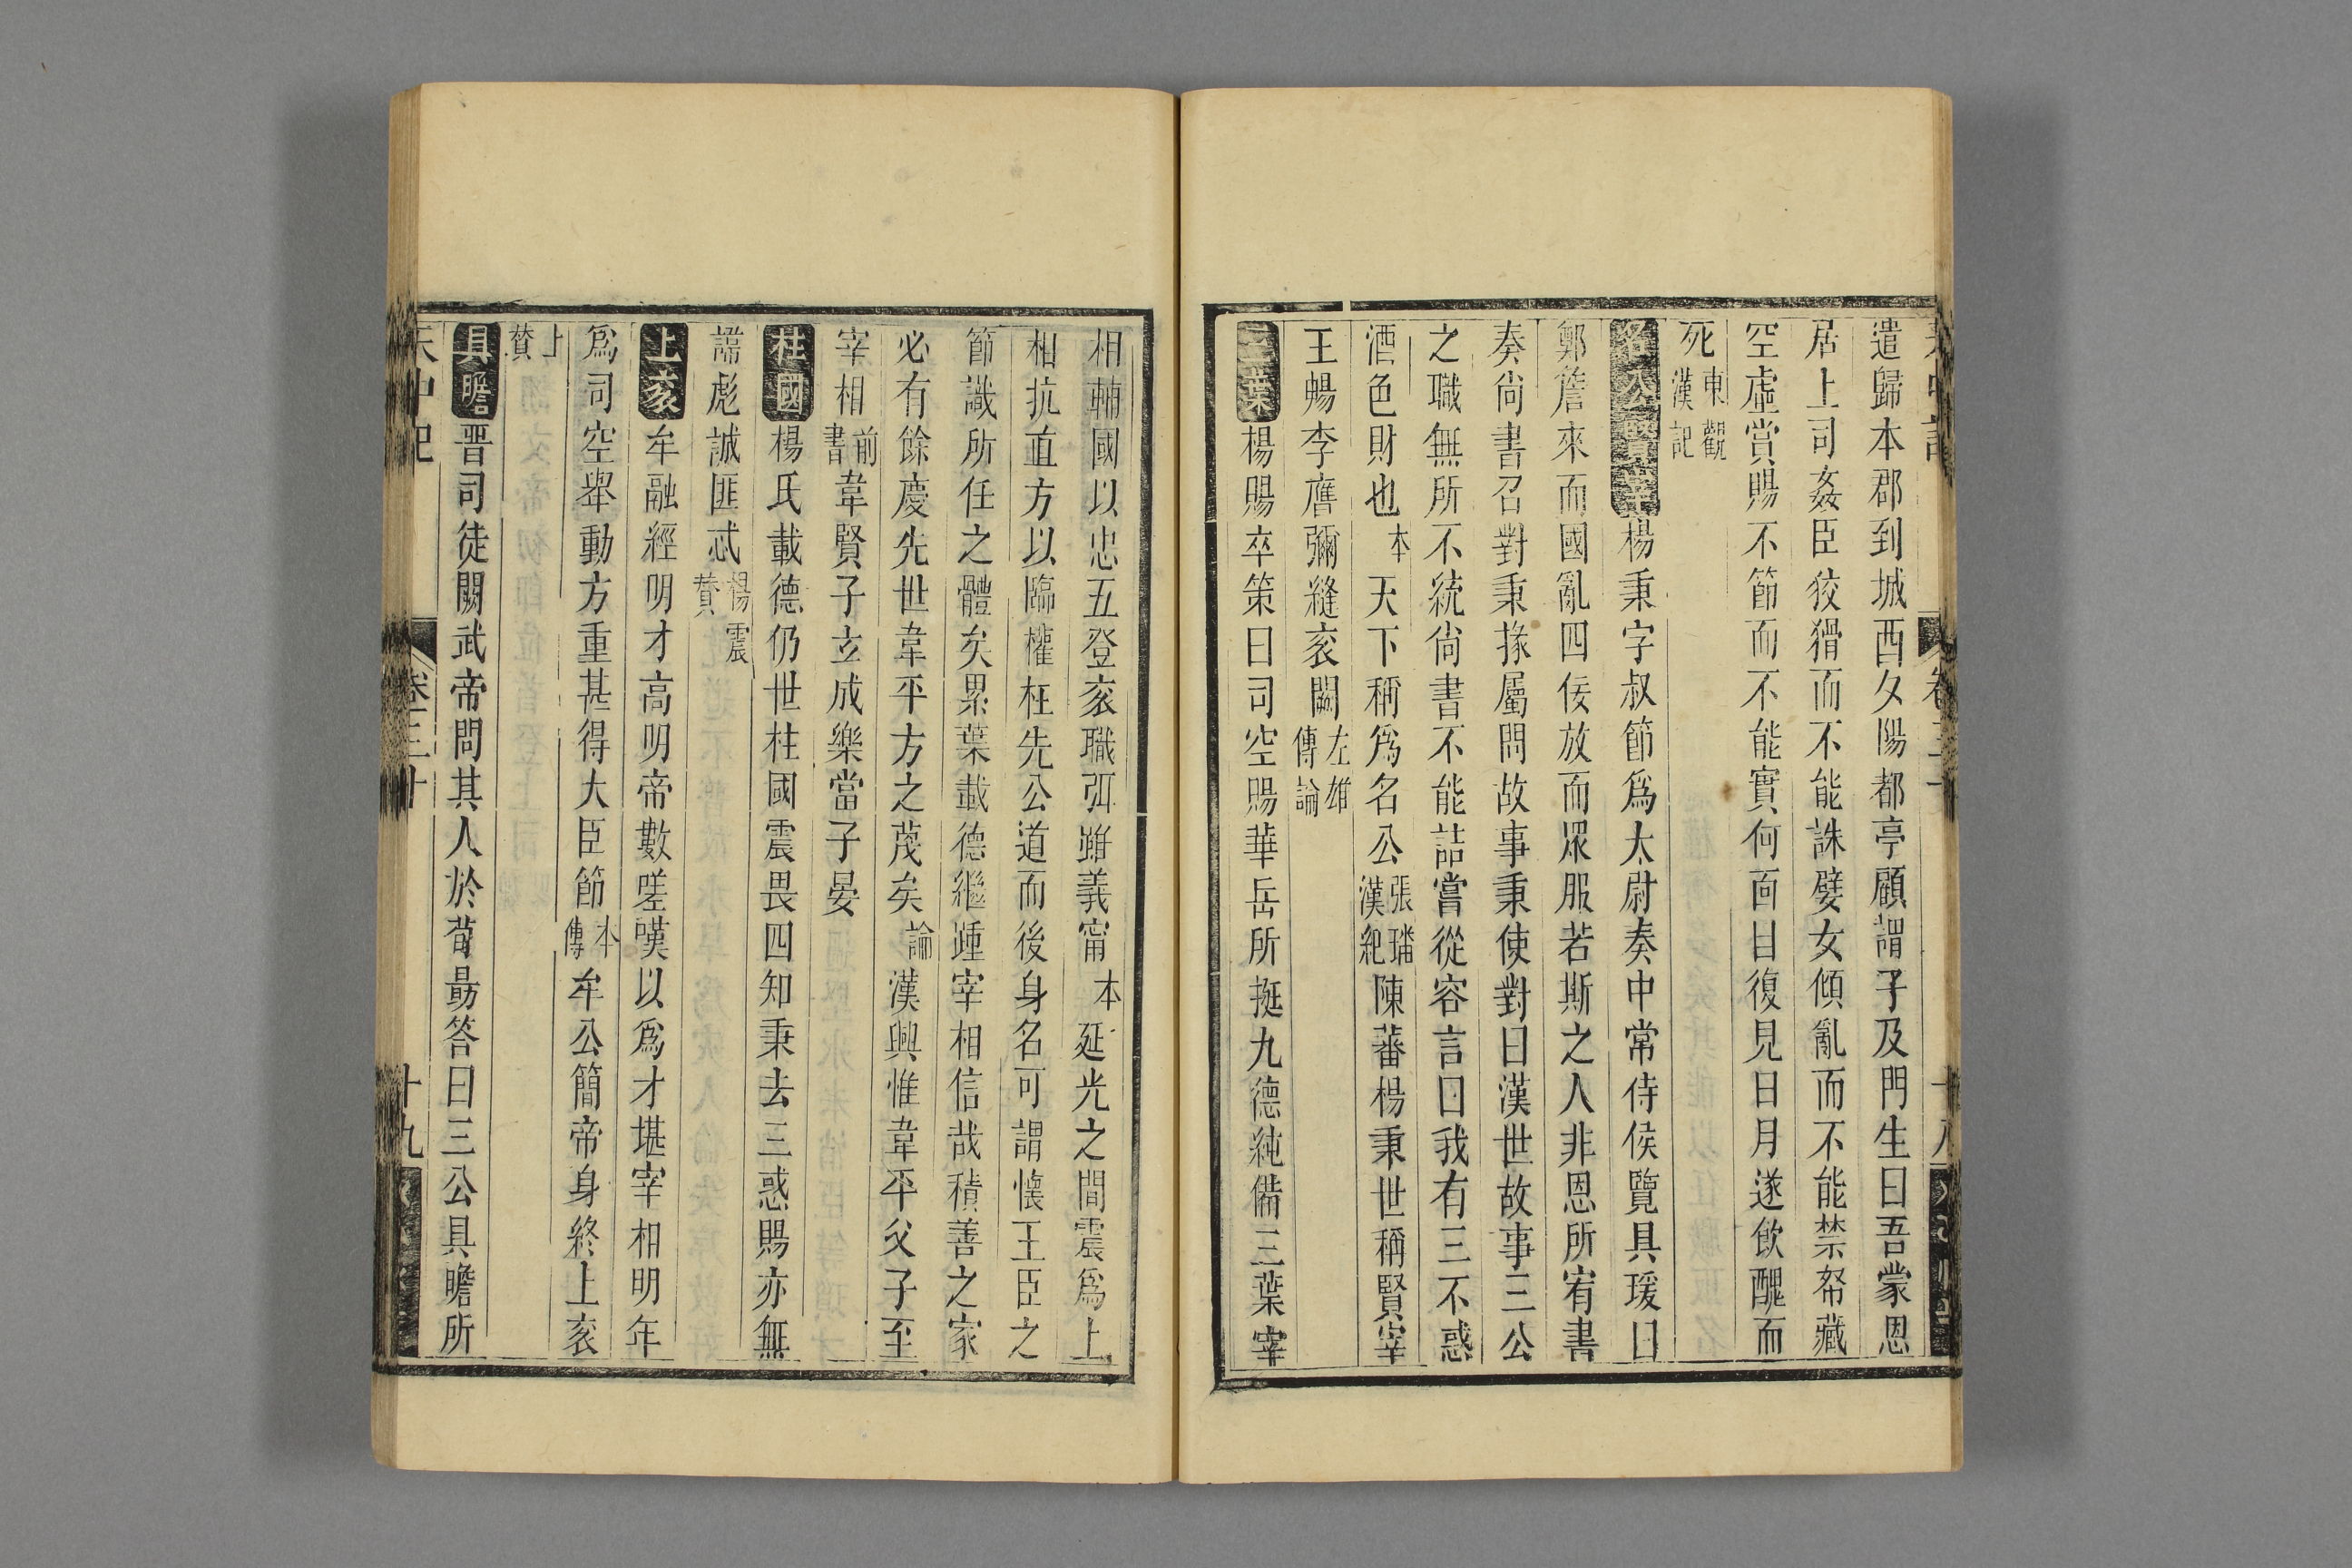 遣歸本郡到城西夕陽都亭顧謂子及門生曰吾蒙恩
居上司姦臣狡猾而不能誅嬖女傾亂而不能禁帑藏
空虛賞賜不節而不能實何面目復見日月遂飲酖而
死東觀漢記
名公賢宰楊秉字叔節爲太尉奏中常侍侯覽具瑗曰
鄭詹來而國亂四佞放而眾服若斯之人非恩所宥書
奏尚書召對秉掾屬問故事秉使對曰漢世故事三公
之職無所不統尚書不能詰嘗從容言曰我有三不惑
酒色財也本天下稱爲名公張璠漢紀陳蕃楊秉世稱賢宰
王暢李膺彌縫袞闕左雄傳論
三葉楊賜卒策曰司空賜華岳所挺九德純備三葉宰
相輔國以忠五登袞職弭難義甯本延光之間震爲上
相抗直方以臨權枉先公道而後身名可謂懷王臣之
節識所任之體矣累葉載德繼踵宰相信哉積善之家
必有餘慶先世韋平方之蔑矣論漢興惟韋平父子至
宰相前書韋賢子玄成樂當子晏
柱國楊氏載德仍世柱國震畏四知秉去三惑賜亦無
諱彪誠匪忒楊震贊
上袞牟融經明才高明帝數嗟嘆以爲才堪宰相明年
爲司空舉動方重甚得大臣節本傳牟公簡帝身終上袞
上贊
具瞻晋司徒闕武帝問其人於荀勗答曰三公具瞻所
卷三十
十九